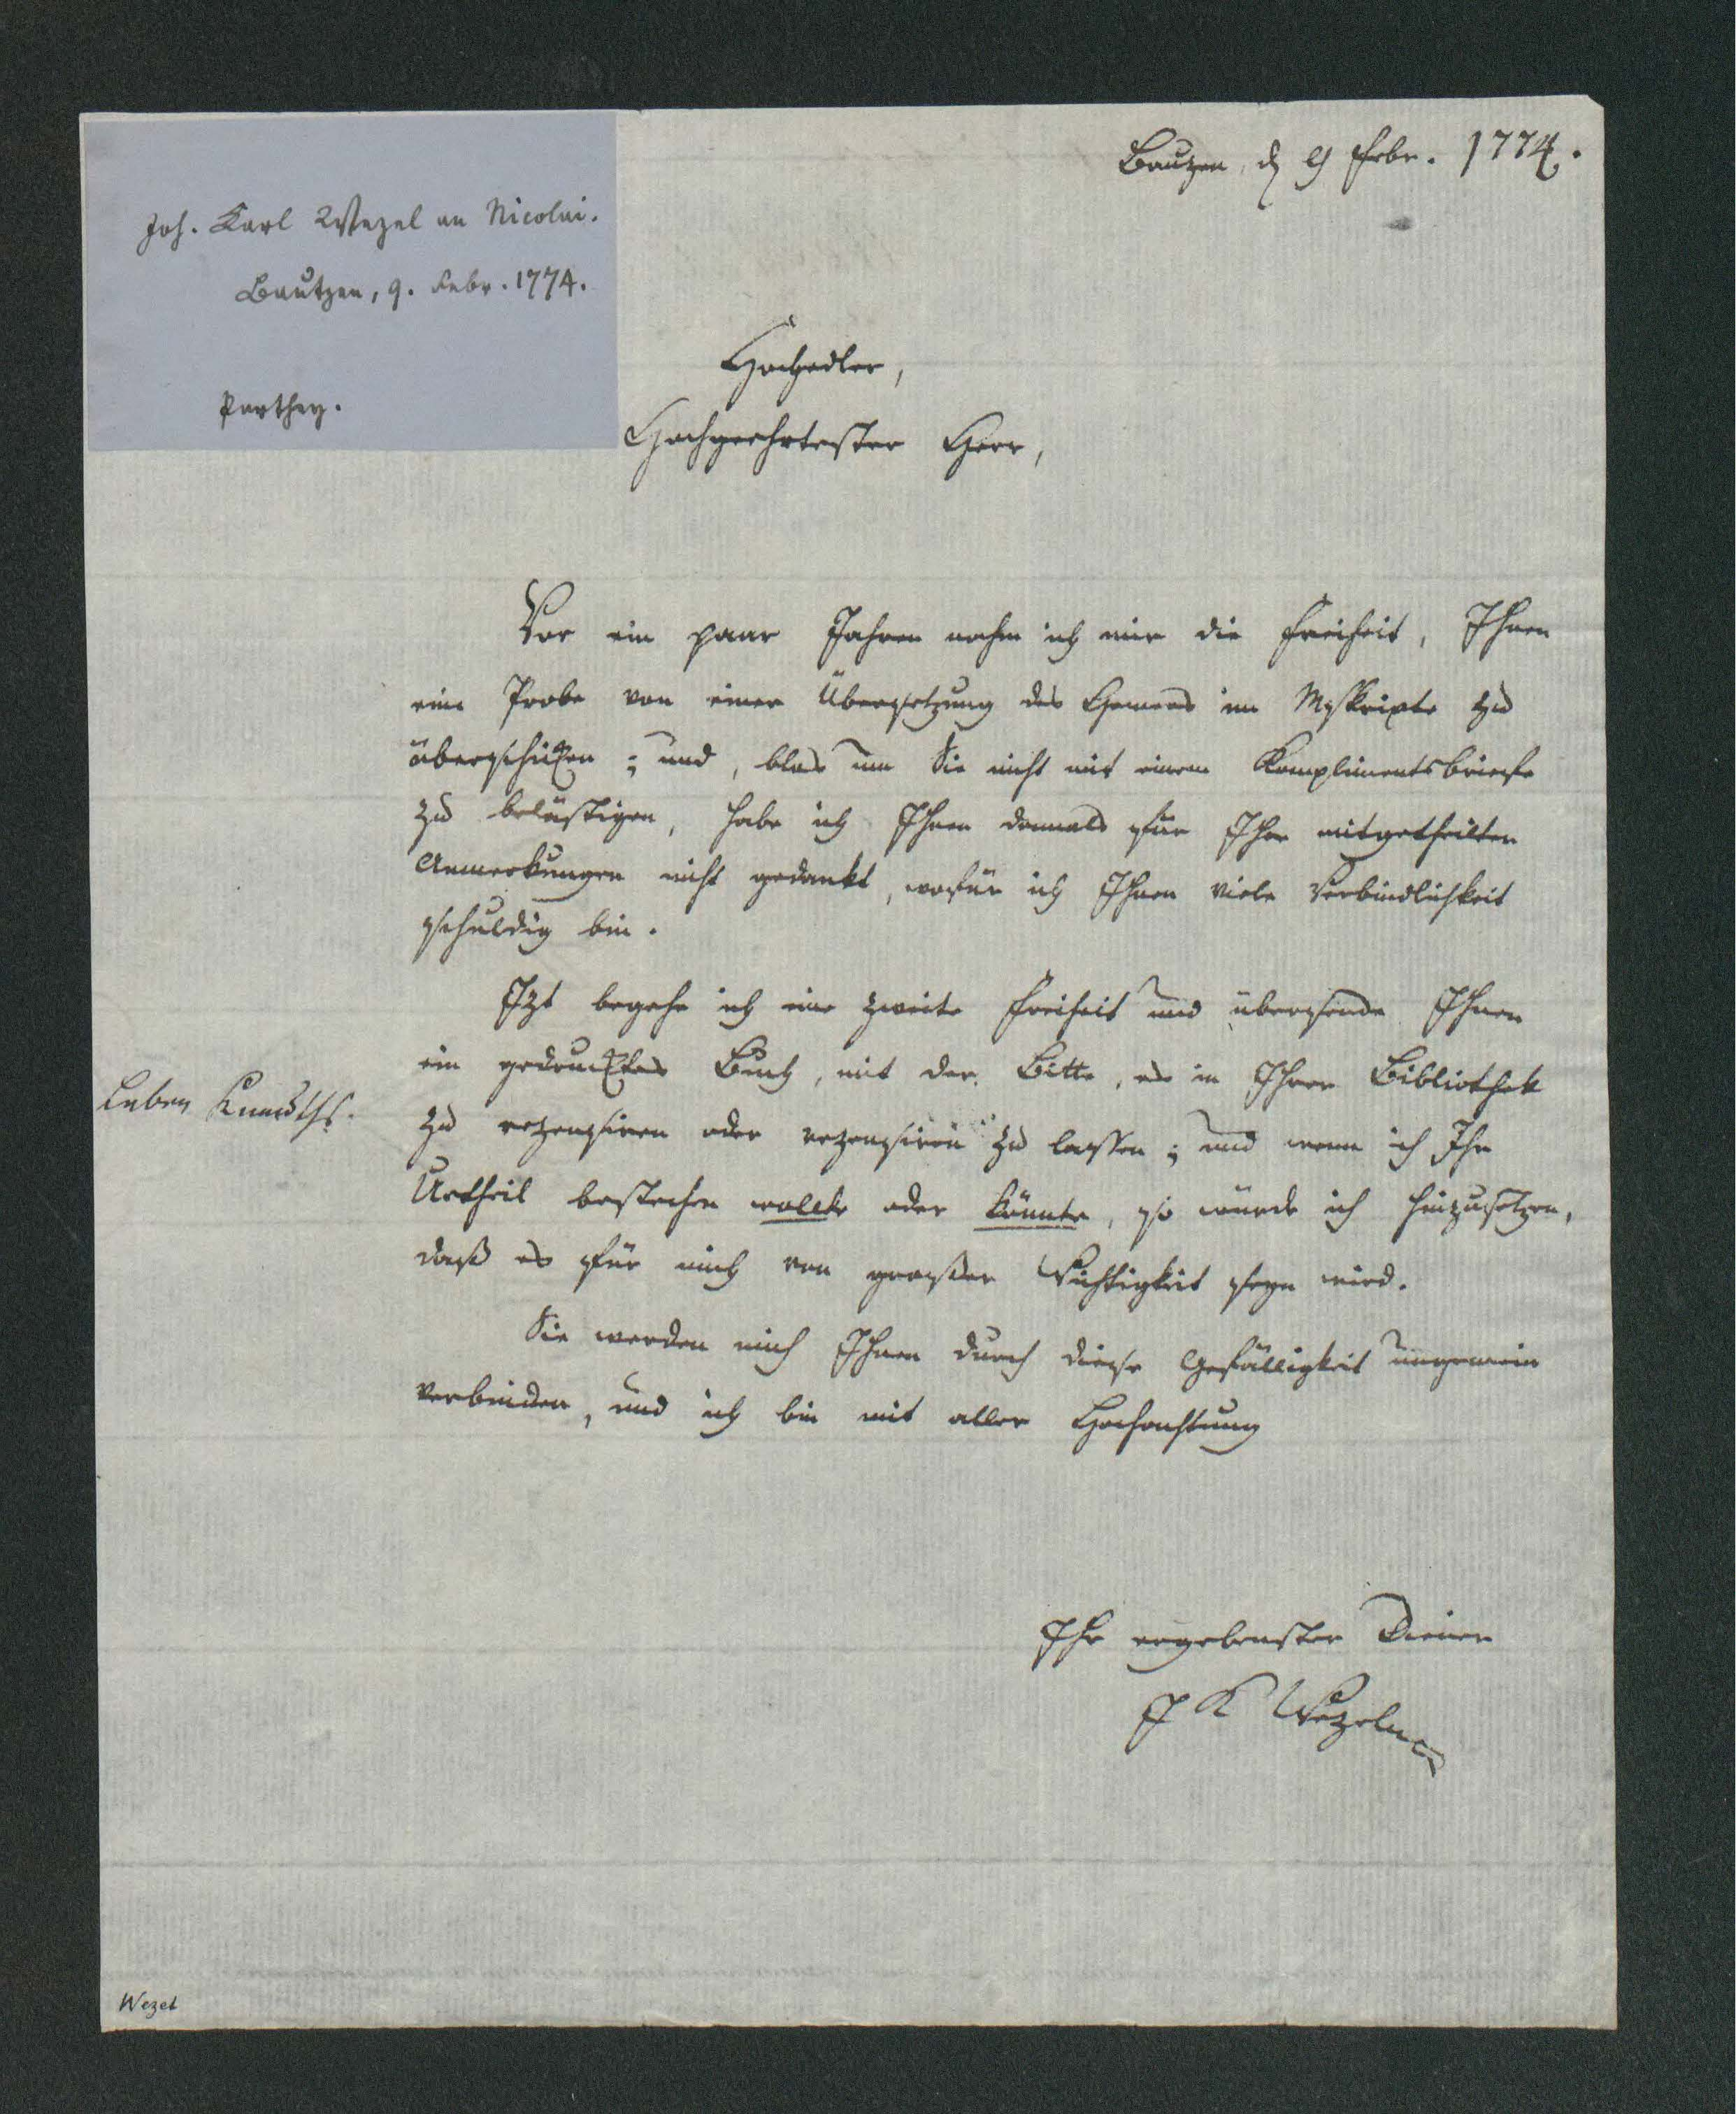 Joh. Karl Wezel an Nicolai.
Bautzen, 9. Febr. 1774.
Parthey.
Bauzen, d 9 Febr. 1774.
Hochedler,
Hochgeehrtester Herr,
Vor ein paar Jahren nahm ich mir die Freiheit, Ihnen
eine Probe von einer Übersetzung des Homers im Mskripte zu
überschicken; und, blos um Sie nicht mit einem Komplimentsbriefe
zu belästigen, habe ich Ihnen damals für Ihre mitgetheilten
Anmerkungen nicht gedankt, wofür ich Ihnen viele Verbindlichkeit
schuldig bin.
Izt begehe ich eine zweite Freiheit und übersende Ihnen
ein gedrucktes Buch, mit der Bitte, es in Ihrer Bibliothek
zu rezensiren oder rezensiren zu lassen; und wenn ich Ihr
Urtheil bestechen wollte oder könnte, so würde ich hinzusetzen,
daß es für mich von großer Wichtigkeit seyn wird.
Leben Knauths.
Sie werden mich Ihnen durch diese Gefälligkeit ungemein
verbinden, und ich bin mit aller Hochachtung
Ihr ergebenster Diener
J K Wezel
Wezel